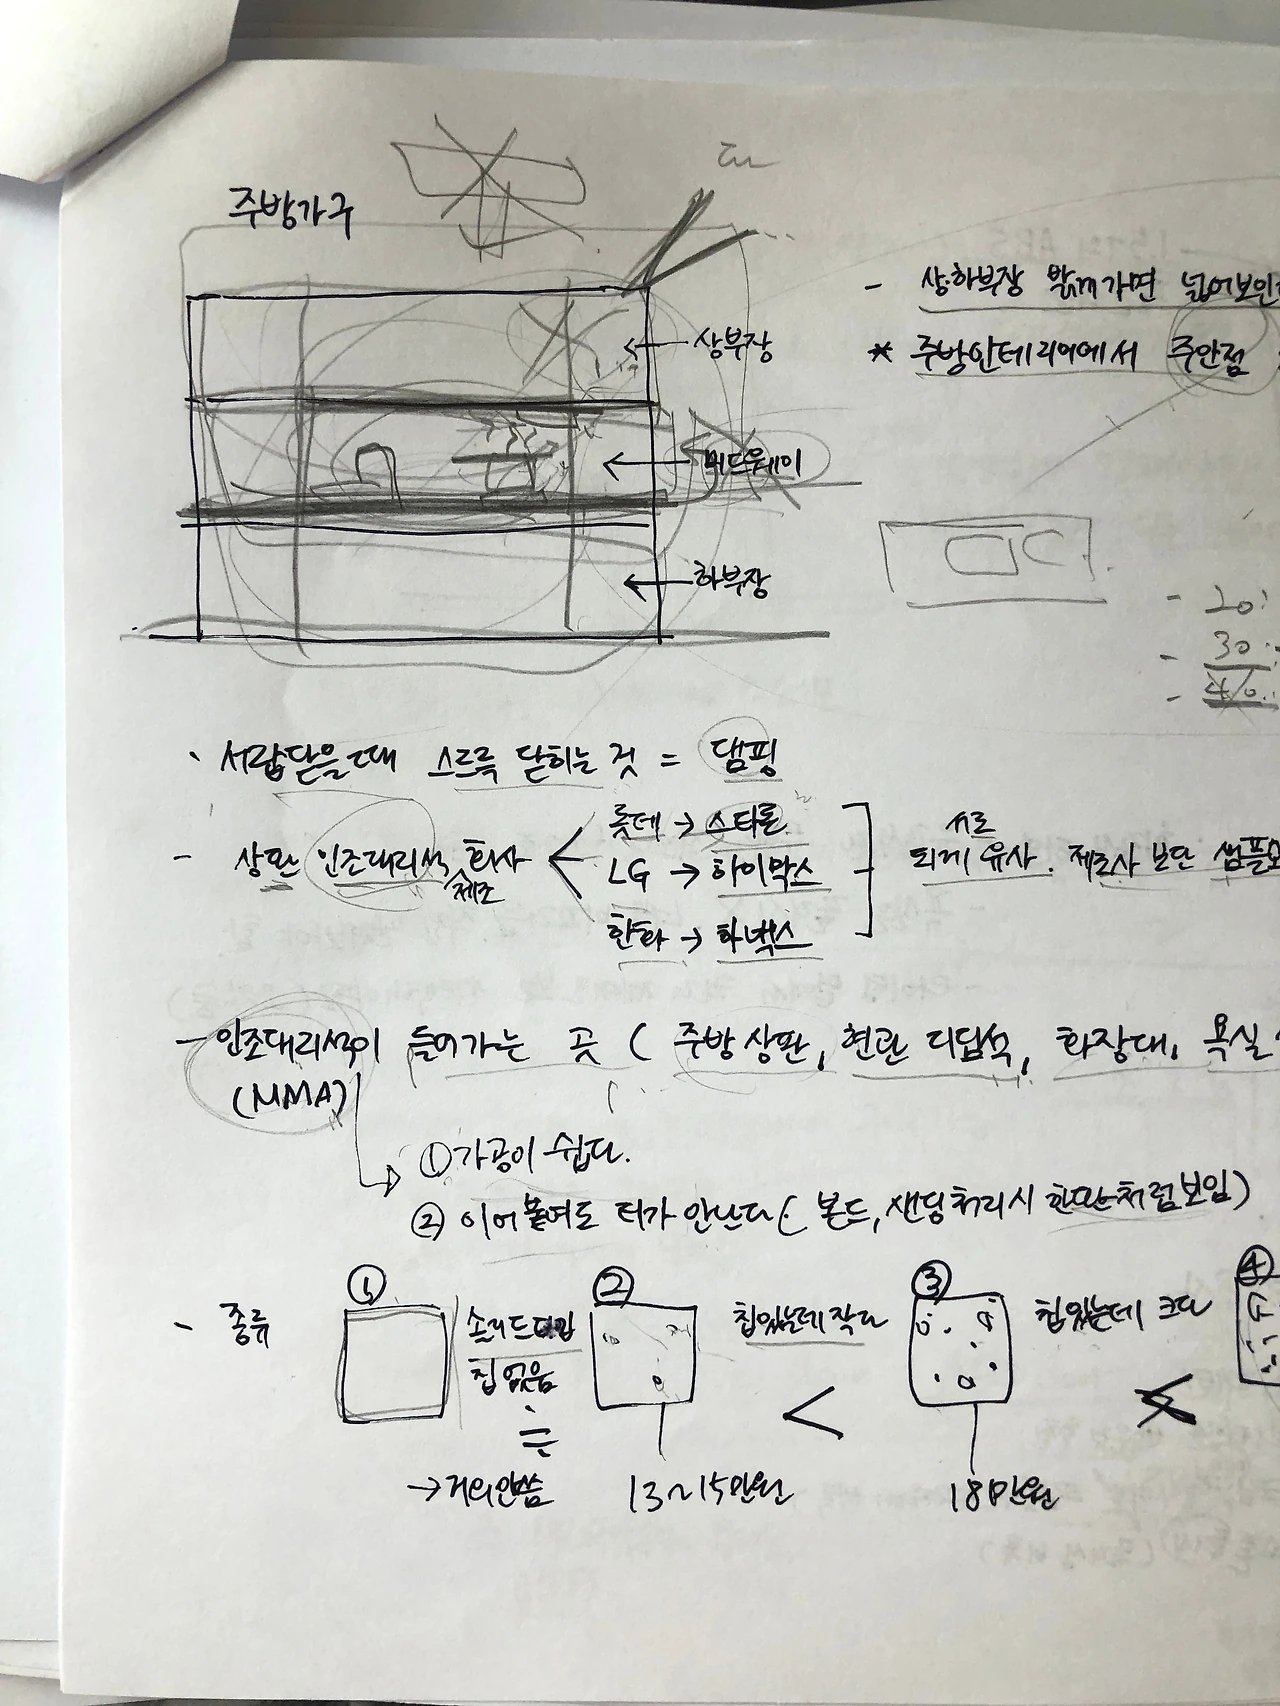 주방가구
- 상하부장 밝게가면 넓어보인
* 주방인테리어에서 주안점
상부장
미드웨이
하부장
- 20
- 30
- 40
· 서랍닫을때 스르륵 닫히는 것 = 댐핑
- 상판 인조대리석 제조 회사
롯데 → 스타론
LG → 하이막스
한화 → 하넥스
서로
되게 유사. 제조사 보단 샘플
- 인조대리석이 들어가는 곳 ( 주방상판, 현관 디딤석, 화장대, 욕실
(MMA)
① 가공이 쉽다.
② 이어붙여도 티가 안난다 ( 본드, 샌딩처리시 한판처럼보임)
- 종류
① 솔리드타입
칩없음
=
→ 거의안씀
② 칩있는데 작다
13~15만원
<
③ 칩있는데 크다
18만원
<
④